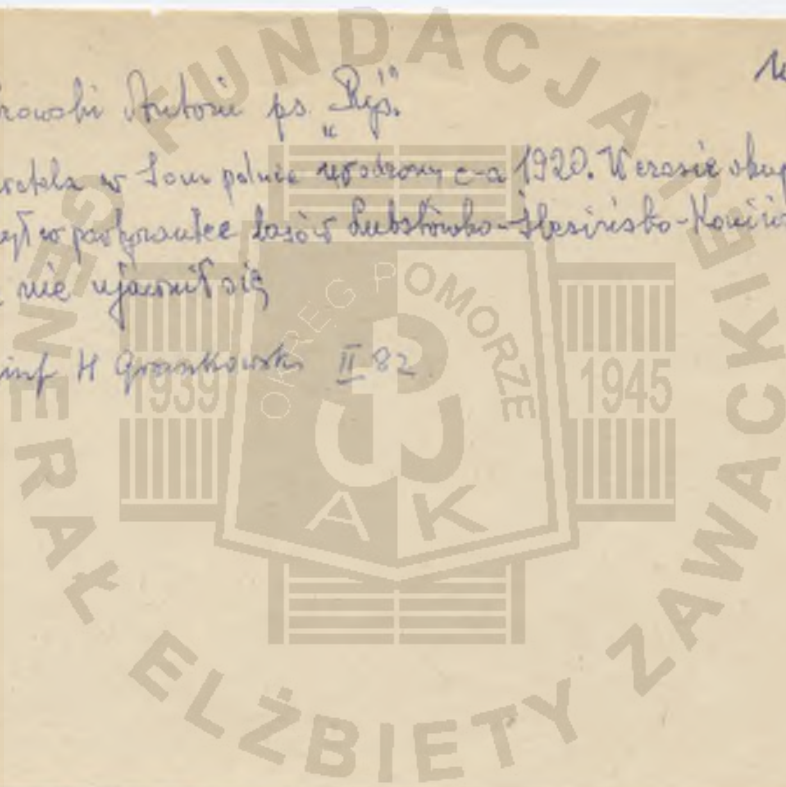 rowski Antoni ps. "Ryś."
w Sompolnie urodzony c-a 1920. W czasie okup
w partyzantce lasów Lubstowsko-Ślesińsko-
nie ujawnił się
inf H Graszkowski II 82.
FUNDACJA
GENERAŁ ELŻBIETY ZAWACKIEJ
OKRĘG POMORZE
1939
1945
AK